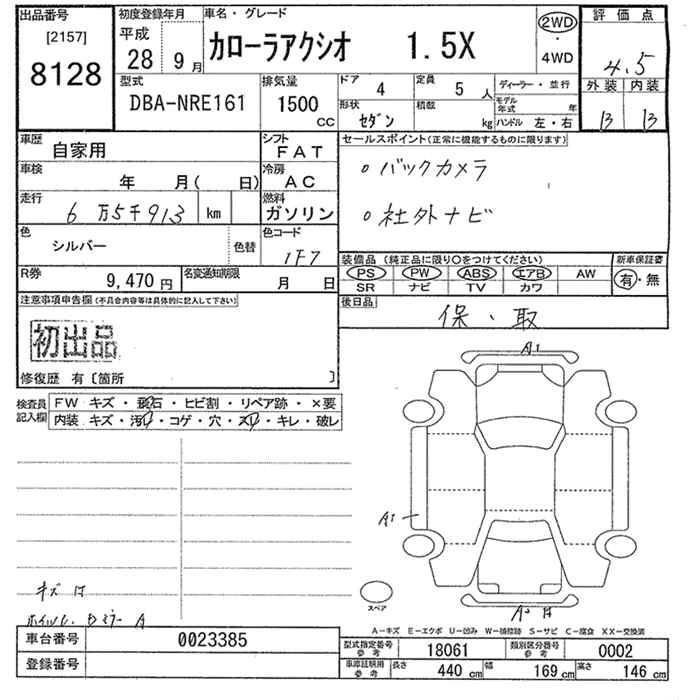 出品番号 初度登録年月 車名・グレード 2WD ・ 4WD 評価点
[2157] 8128 平成 28 9月 カローラアクシオ 1.5X 4.5
型式 排気量 ドア 4 定員 5人 ディーラー・並行 外装 内装
DBA-NRE161 1500 cc 形状 セダン 積載 kg モデル年式 年 ハンドル 左・右 B B
車歴 自家用 シフト FAT セールスポイント(正常に機能するものに限ります)
車検 年 月( 日) 冷房 AC ○バックカメラ
走行 6万5千913 km 燃料 ガソリン ○社外ナビ
色 シルバー 色替 色コード 1F7
装備品 (純正品に限り○をつけてください) 新車保証書
R券 9,470円 名変通知期限 月 日 PS PW ABS エアB AW 有・無
SR ナビ TV カワ
注意事項申告欄(不具合内容等は具体的に記入して下さい) 後日品 保・取
初出品
修復歴 有〔箇所 〕
検査員記入欄 FW キズ・飛石・ヒビ割・リペア跡・×要
内装 キズ・汚れ・コゲ・穴・スレ・キレ・破レ
A1
A1
キズ
スペア
ホイール. Dミラー A
A-キズ E-エクボ U-凹み W-補修跡 S-サビ C-腐食 XX-交換済
車台番号 0023385 型式指定番号 参考 18061 類別区分番号 参考 0002
登録番号 車庫証明用 参考 長さ 440 cm 幅 169 cm 高さ 146 cm